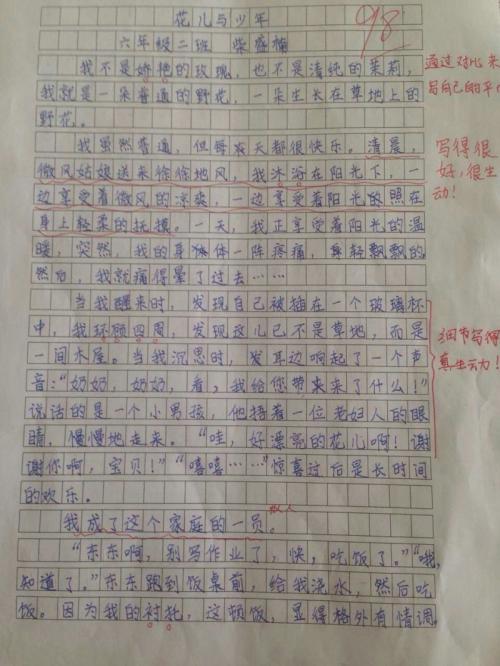 花儿与少年
98
六年级二班 柴睿楠
我不是娇艳的玫瑰，也不是清纯的茉莉，
通过对比来
我就是一朵普通的野花，一朵生长在草地上的
写自己的平
野花。
我虽然普通，但每天都很快乐。清晨，
写得很
微风姑娘送来徐徐地风，我沐浴在阳光下，一
好，很生
边享受着微风的凉爽，一边享受着阳光的照在
动！
身上轻柔的抚摸。一天，我正享受着阳光的温
暖，突然，我的身体一阵疼痛，身轻飘飘的，
然后，我就痛得晕了过去……
当我醒来时，发现自己被插在一个玻璃杯
中，我环顾四周，发现这儿已不是草地，而是
细节写得
一间木屋。当我沉思时，发耳边响起了一个声
真生动！
音：“奶奶，奶奶，看，我给你带来来了什么！”
说话的是一个小男孩，他捂着一位老妇人的眼
睛，慢慢地走来。“哇，好漂亮的花儿啊！谢
谢你啊，宝贝！”“嘻嘻……”惊喜过后是长时间
的欢乐。
拟人
我成了这个家庭的一员。
“东东啊，别写作业了，快，吃饭了。”“哦，
知道了。”东东跑到饭桌前，给我浇水，然后吃
饭。因为我的衬托，这顿饭，显得格外有情调。